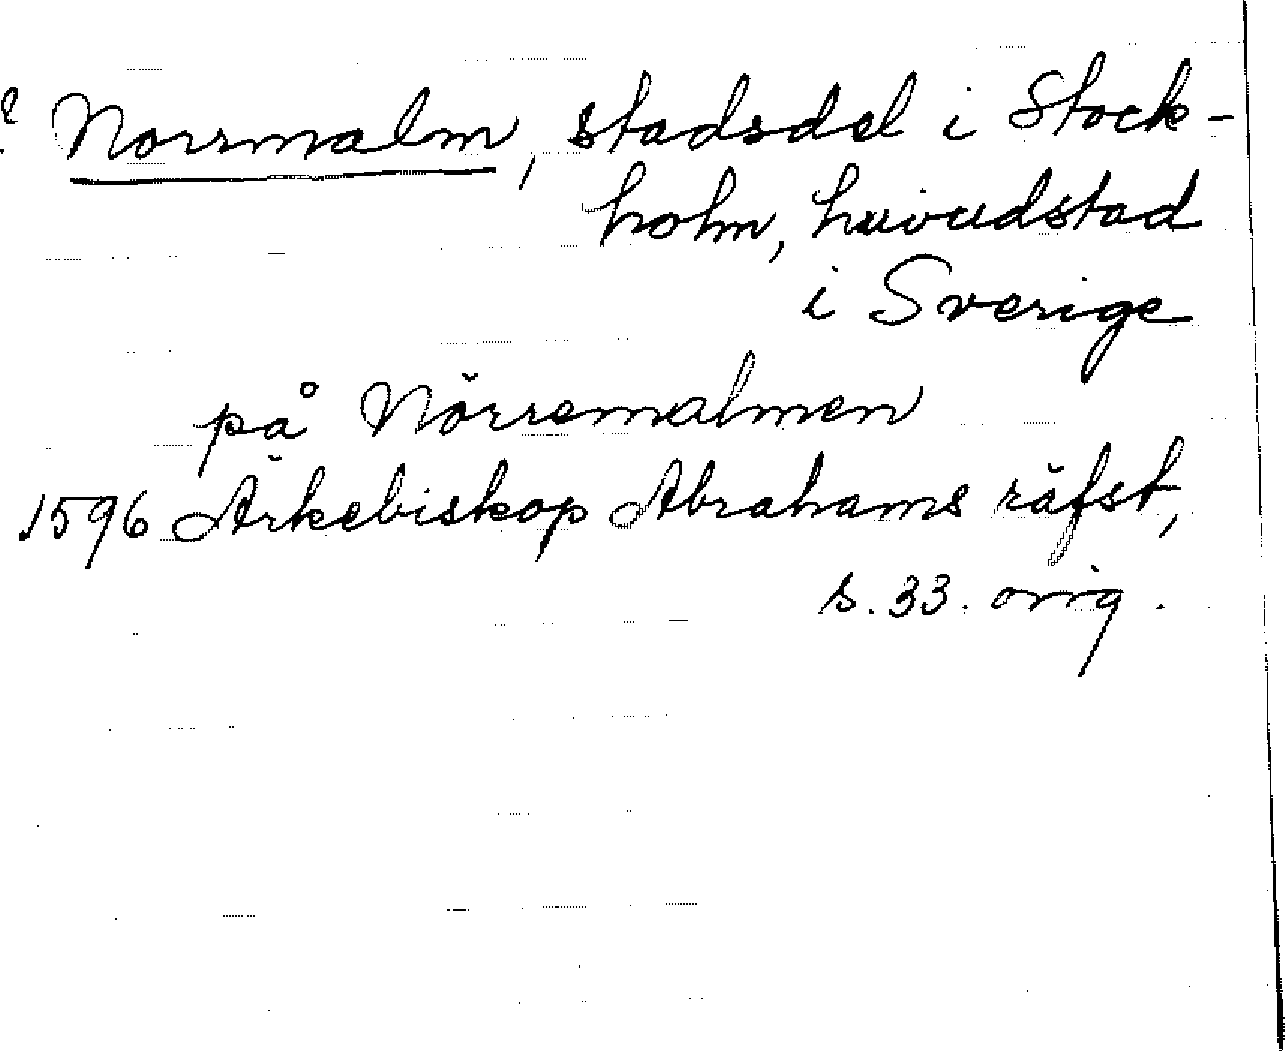 ? Norrmalm, stadsdel i Stock-
holm, huvudstad
i Sverige
på Nörremalmen
1596 Ärkebiskop Abrahams räfst,
s. 33. orig.